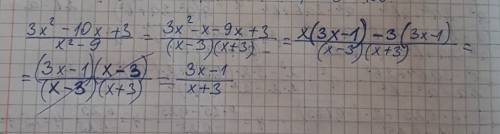 (3x²-10x+3)/(x²-9) = (3x²-x-9x+3)/((x-3)(x+3)) = (x(3x-1)-3(3x-1))/((x-3)(x+3)) =
= ((3x-1)(x-3))/((x-3)(x+3)) = (3x-1)/(x+3)